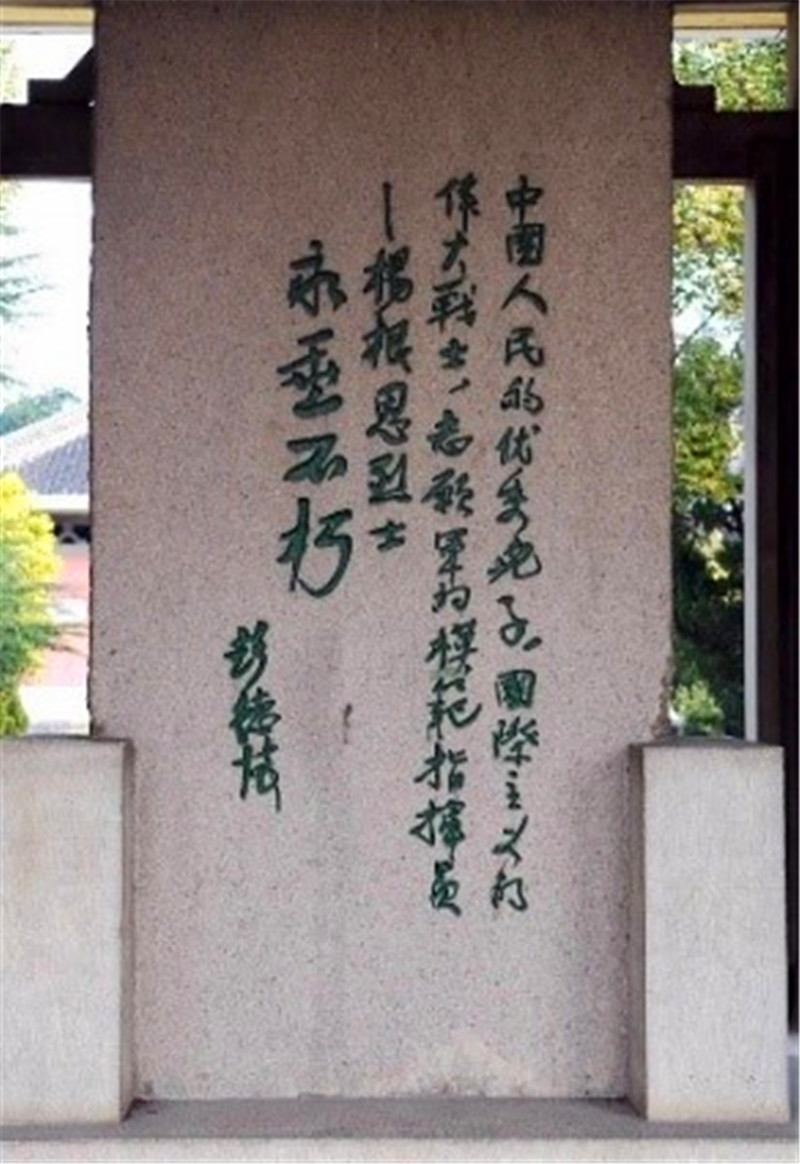 中國人民的优秀兒子,國際主义的
偉大戰士、志願軍的模範指揮員
—楊根思烈士
永垂不朽
彭德懷